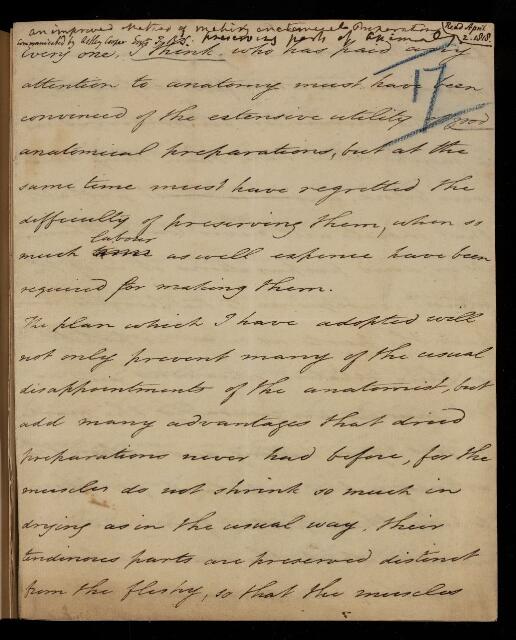 an improved method of making anatomical Preparations
Read April
2. 1818.
Communicated by Astley Cooper Esqr F.R.S. preserving parts of Animals
17
Every one, I think, who has paid any
attention to anatomy must have been
convinced of the extensive utility good
anatomical preparations, but at the
same time must have regretted the
difficulty of preserving them, when so
labour
much time as well expence have been
required for making them.
The plan which I have adopted will
not only prevent many of the usual
disappointments of the anatomist, but
add many advantages that dried
preparations never had before, for the
muscles do not shrink so much in
drying as in the usual way, their
tendinous parts are preserved distinct
from the fleshy, so that the muscles